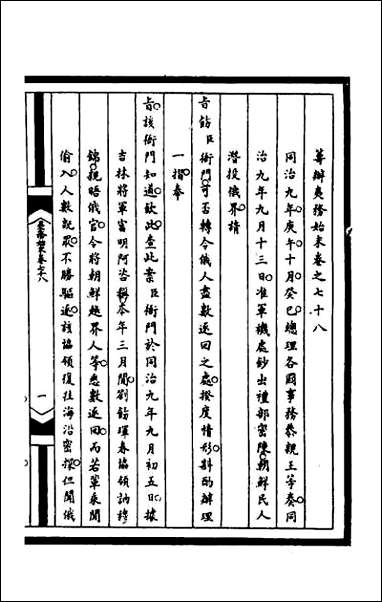 籌辦夷務始末卷之七十八
同治九年庚午十月癸巳總理各國事務恭親王等奏同
治九年九月十三日准軍機處鈔出禮部密陳朝鮮民人
潛投俄界情
一摺奉
旨飭臣衙門可否轉令俄人盡數逐回之處揆度情形斟酌辦理
旨該衙門知道欽此查此案臣衙門於同治九年九月初五日據
吉林將軍富明阿咨稱本年三月間劄飭琿春協領訥穆
錦親晤俄官令將朝鮮越界人等悉數逐回而若輩乘間
偷入人數旣眾不勝驅逐該協領復往海沿密探但聞俄
一